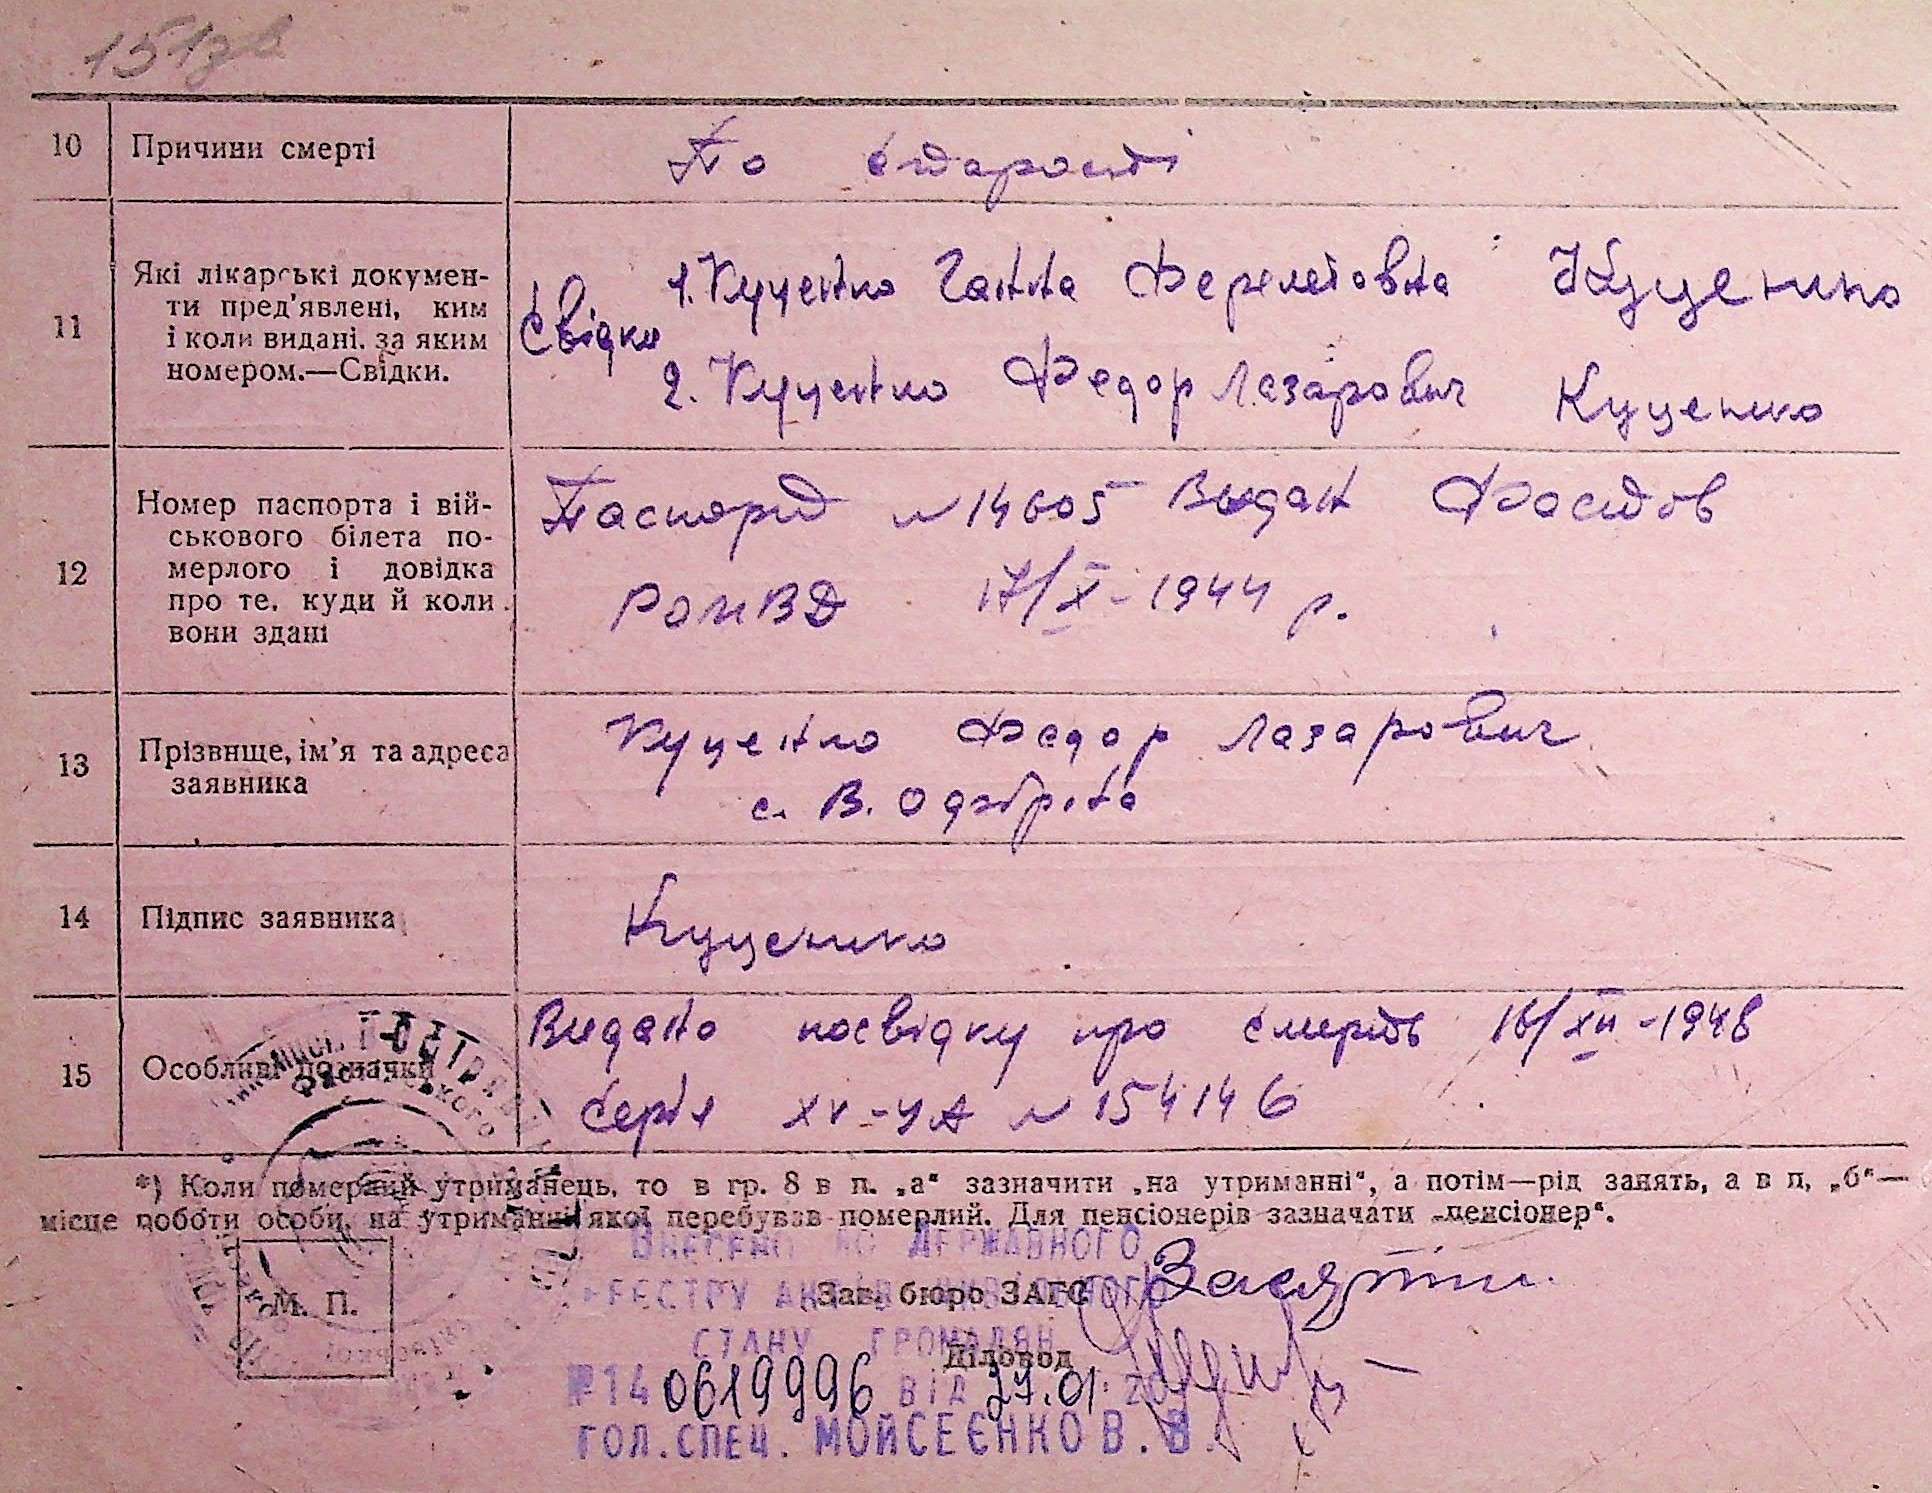 151зв
10 Причини смерті По старості
11 Які лікарські докумен-
ти пред'явлені, ким
і коли видані, за яким
номером.—Свідки.
Свідки 1. Куценко Ганна Куценко
2. Куценко Федор Лазарович Куценко
12 Номер паспорта і вій-
ськового білета по-
мерлого і довідка
про те, куди й коли
вони здані
Паспорт N 14605 Видан Фастов
РОМВД 17/X-1944 р.
13 Прізвище, ім'я та адреса
заявника
Куценко Федор Лазарович
с. В. Офірна
14 Підпис заявника Куценко
15 Особливі позначки
Видано посвідку про смерть 16/XII-1948
Серія XV-УА N 154146
*) Коли померлий утриманець, то в гр. 8 в п. „а“ зазначити „на утриманні“, а потім—рід занять, а в п. „б“—
місце роботи особи, на утриманні якої перебував померлий. Для пенсіонерів зазначати „пенсіонер“.
М. П.
Зав. бюро ЗАГС
Діловод
ВНЕСЕНО ДО ДЕРЖАВНОГО
РЕЄСТРУ АКТІВ ЦИВІЛЬНОГО
СТАНУ ГРОМАДЯН
№ 14 0619996 ВІД 27.01.
ГОЛ.СПЕЦ. МОЙСЕЄНКО В. В.